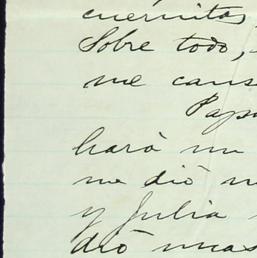 cuernitos,
Sobre todo,
me caus
Papa
hará un
me dió m
y Julia
dró unas